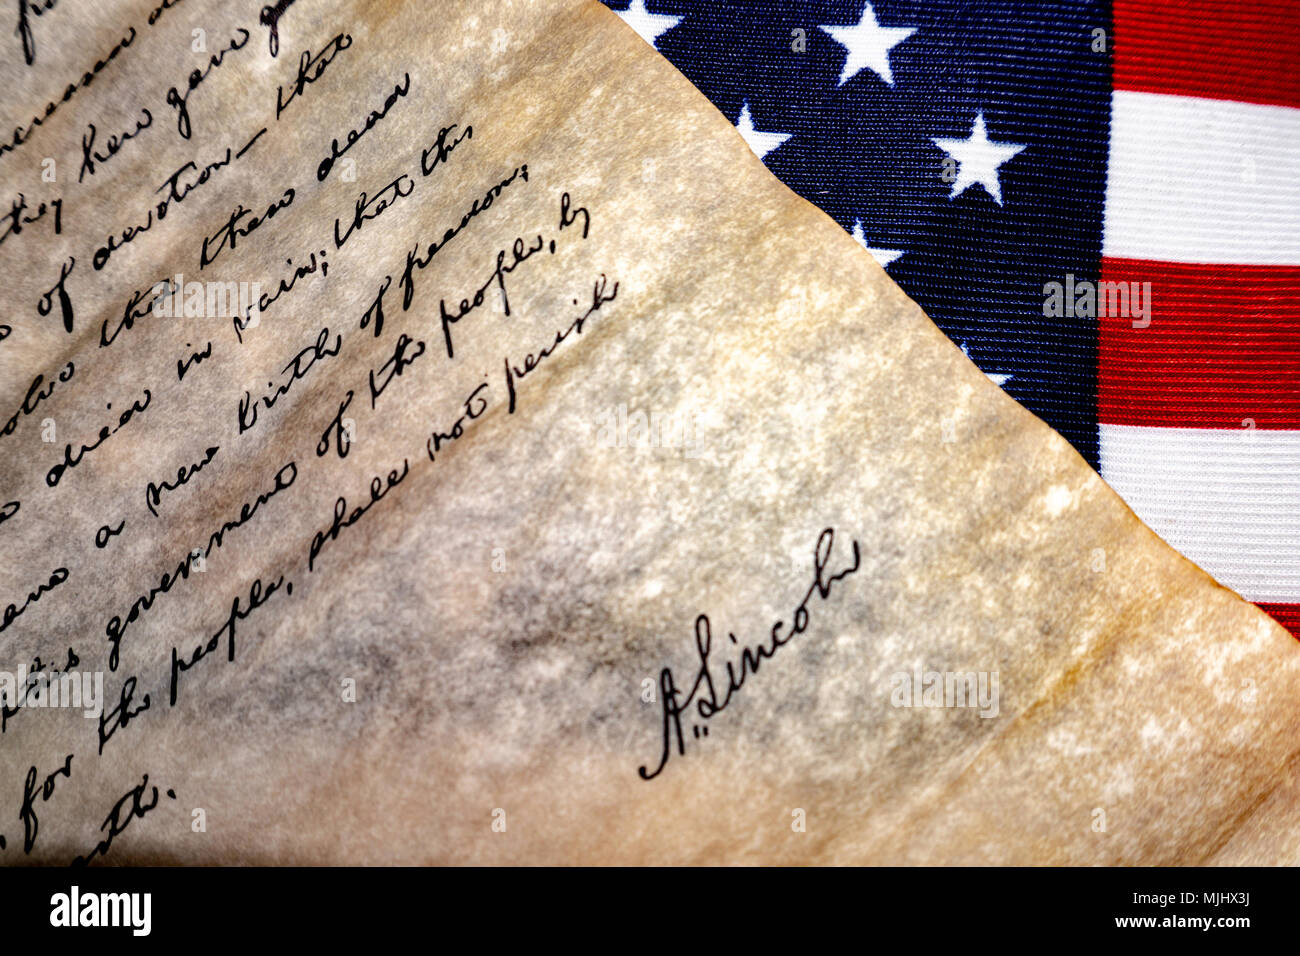 increased
they here gave
of devotion— that
that these dead
died in vain; that this
a new birth of freedom;
this government of the people, by
for the people, shall not perish
earth.
A. Lincoln
alamy
alamy
Image ID: MJJHX3J
www.alamy.com